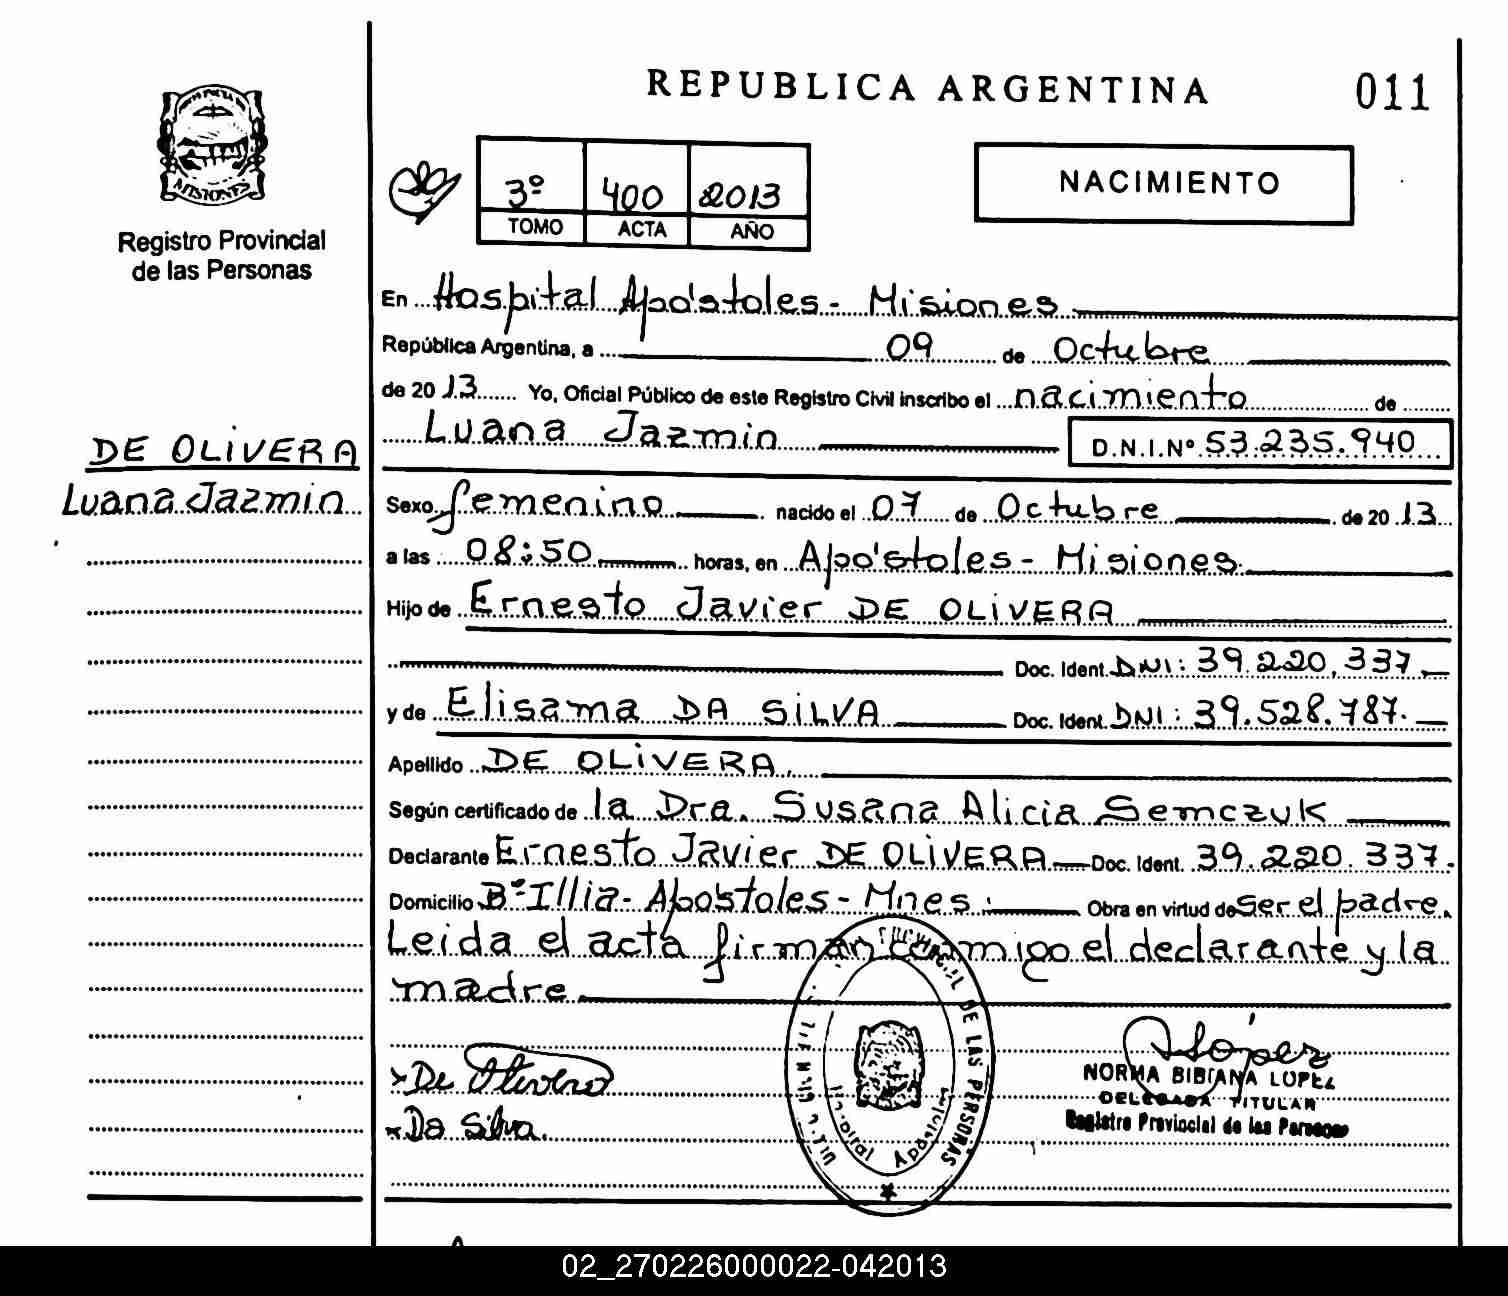 REPUBLICA ARGENTINA
011
MISIONES
Registro Provincial
de las Personas
3º 400 2013
TOMO ACTA AÑO
NACIMIENTO
DE OLIVERA
Luana Jazmin
En Hospital Apóstoles - Misiones
República Argentina, a 09 de Octubre
de 2013 Yo, Oficial Público de este Registro Civil inscribo el nacimiento de
Luana Jazmin D.N.I.Nº 53.235.940
Sexo femenino nacido el 07 de Octubre de 2013
a las 08:50 horas, en Apóstoles - Misiones.
Hijo de Ernesto Javier DE OLIVERA
Doc. Ident. DNI: 39.220.337.
y de Elisama DA SILVA Doc. Ident. DNI: 39.528.787.
Apellido DE OLIVERA.
Según certificado de la Dra. Susana Alicia Semczuk
Declarante Ernesto Javier DE OLIVERA Doc. Ident. 39.220.337.
Domicilio Bº Illia - Apóstoles - Mnes. Obra en virtud de ser el padre.
Leida el acta firman conmigo el declarante y la
madre
x De Olivera
x Da Silva.
DE LAS PERSONAS
Hospital Apóstoles
López
NORMA BIBIANA LOPEZ
DELEGADA TITULAR
Registro Provincial de las Personas
02_270226000022-042013